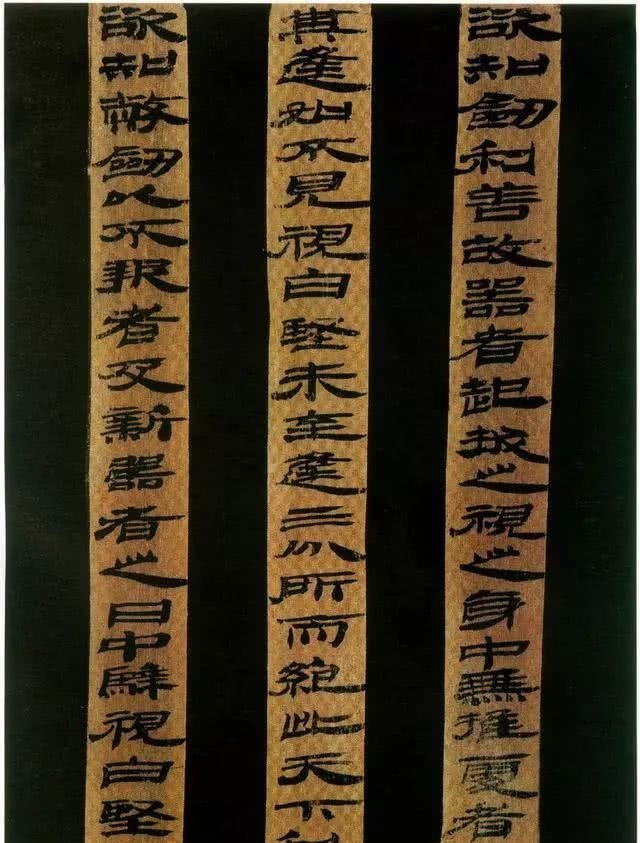 欲知劒利善故器者起拔之視之身中無推處者
其逢如不見視白堅未至逢三分所而絕此天下利
欲知幣劒以不報者及新器者之日中騂視白堅